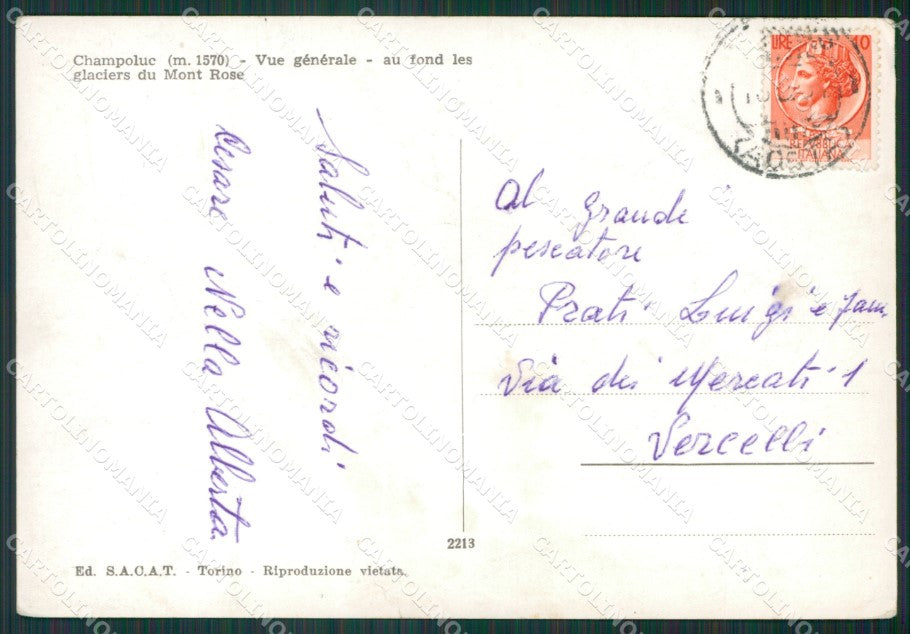 Champoluc (m. 1570) - Vue générale - au fond les
glaciers du Mont Rose
Saluti e ricordi
Cesare Nella Alberta
LIRE 10
REPUBBLICA
ITALIANA
(AOSTA)
Al grande
pescatore
Prati Luigi e fam.
Via dei Mercati 1
Vercelli
2213
Ed. S.A.C.A.T. - Torino - Riproduzione vietata.
CARTOLINOMANIA